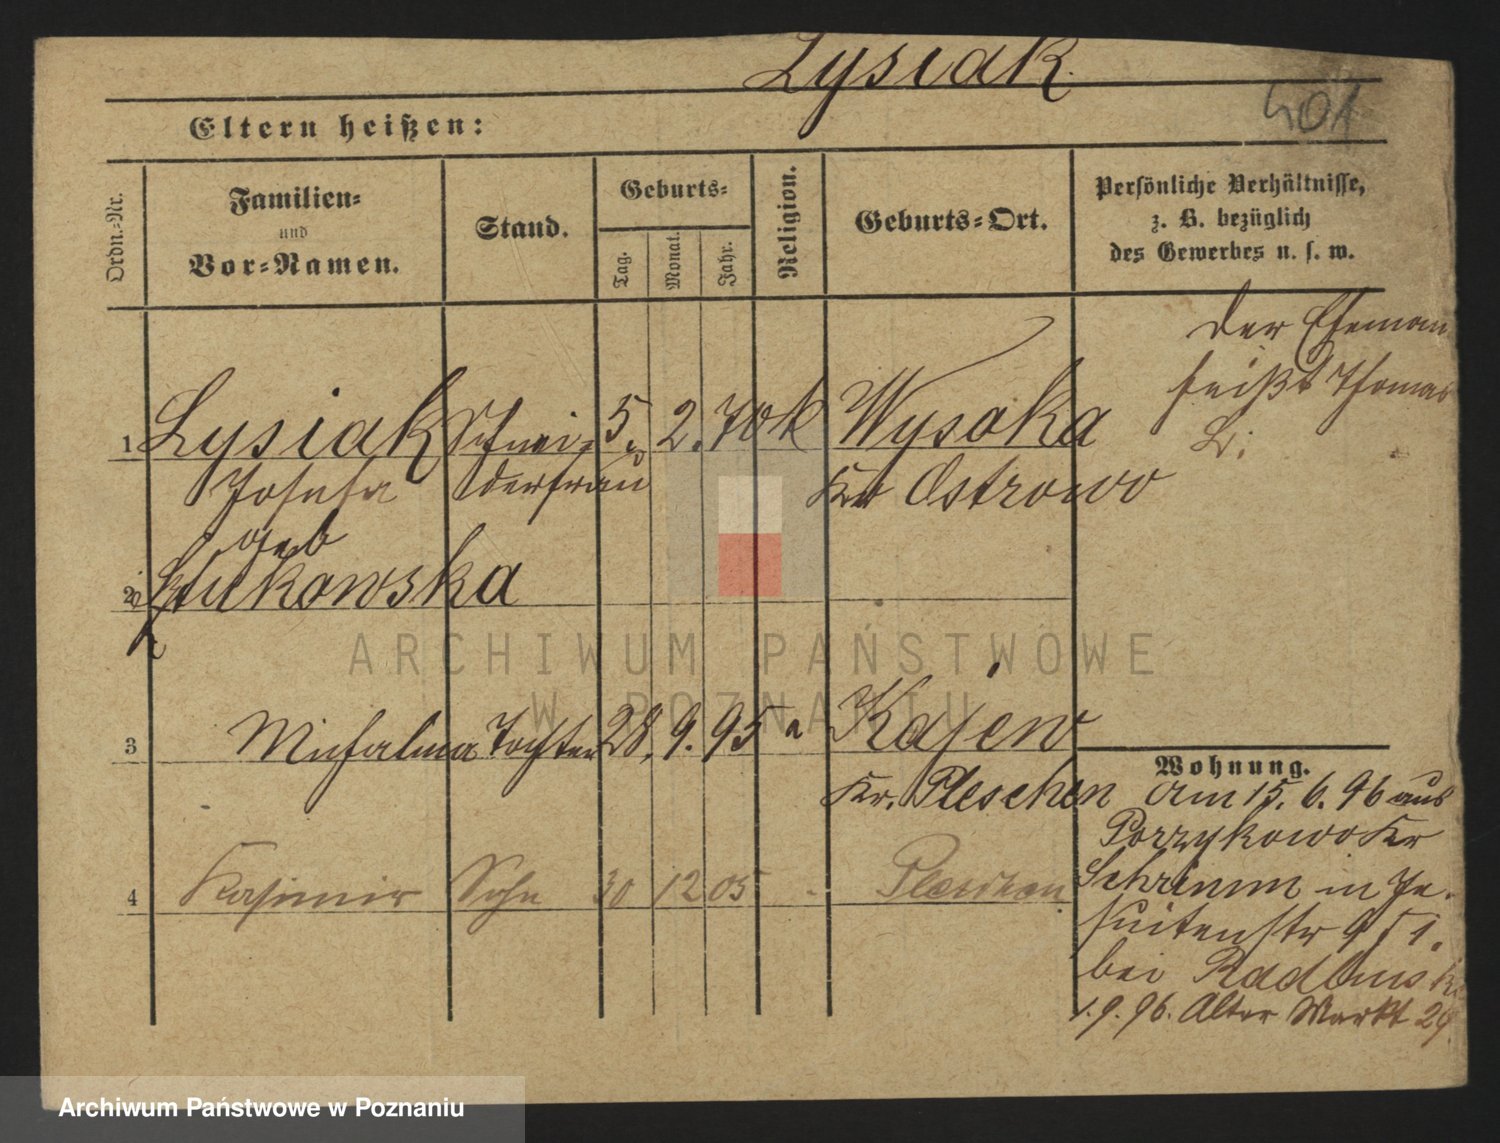 Lysiak.
401
Eltern heißen:
Ordn.-Nr.
Familien-
und
Vor-Namen.
Stand.
Geburts-
Tag.
Monat.
Jahr.
Religion.
Geburts-Ort.
Persönliche Verhältnisse,
z. B. bezüglich
des Gewerbes u. s. w.
Der Eheman
heißt Thomas
L.
1 Lysiak Schnei- 5. 2. 70 k Wysoka
Josefa derfrau Kr Ostrowo
geb
2 kowska
3 Michalina Tochter 28. 9. 95 Kajew
Kr. Pleschen
4 Kasimir Sohn 30 12 05 Pleschen
Wohnung.
am 15. 6. 96 aus
Kr
Schrimm in Je-
suitenstr 951.
bei
1. 9. 96. Alter Markt 29
ARCHIWUM PAŃSTWOWE
W POZNANIU
Archiwum Państwowe w Poznaniu